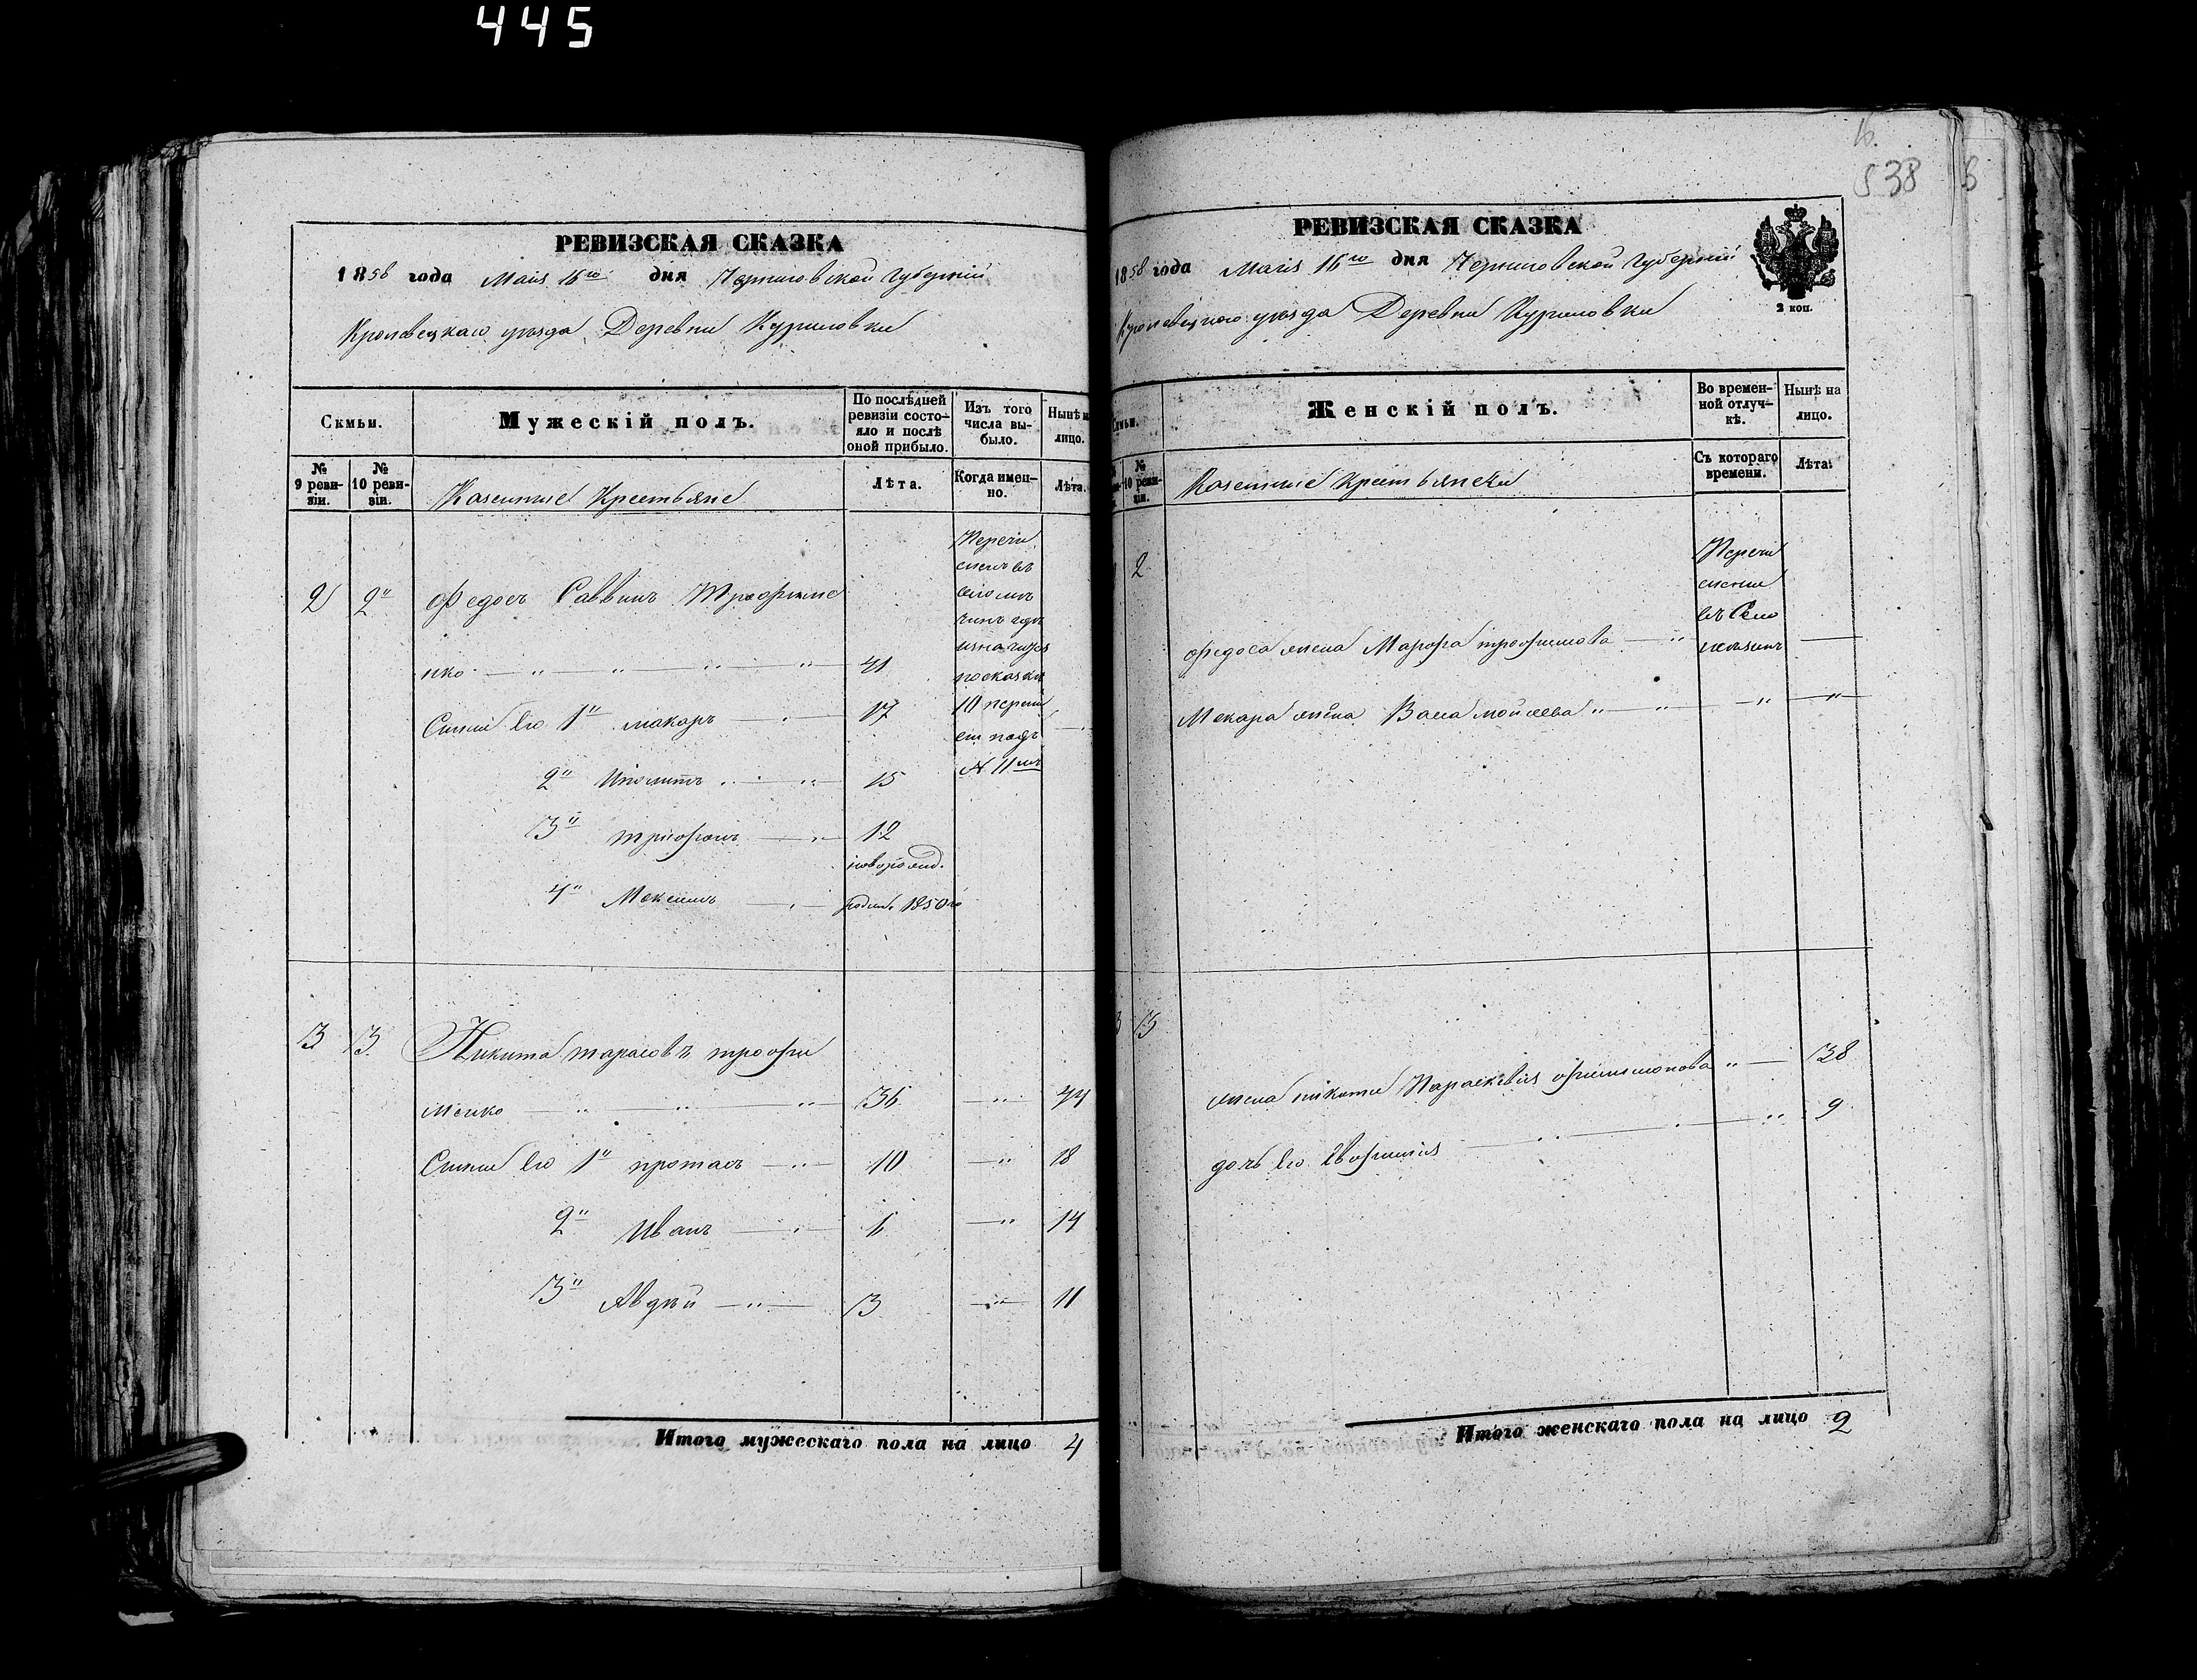 445
РЕВИЗСКАЯ СКАЗКА
1858 года Маія 16го дня Черниговской Губерніи
Кролевецкаго уѣзда Деревни Куриловки
Семьи.
Мужескій полъ.
По послѣдней ревизіи состояло и послѣ оной прибыло.
Изъ того числа выбыло.
Нынѣ на лицо.
№ 9 ревизіи.
№ 10 ревизіи.
Казенные Крестьяне
Лѣта.
Когда именно.
Лѣта.
2 2" Федосъ Саввинъ Трофиме
нко — " — " — " — " 41
Сыны его 1" Макаръ — " — 17
2" Иполитъ — " 15
3" Трифонъ — " 12
новорожд.
4" Максимъ — " — родив. 1850го
Перечи
сленъ въ
10 переч
подъ
N 11мъ
3 3 Никита Тарасовъ Трофи
менко — " — " — " 36 — " 44
Сыны его 1" Протасъ — " — 10 — " 18
2" Иванъ — " — 6 — " 14
3" Авдѣй — " — 3 — " — 11
Итого мужескаго пола на лицо 4
6
538 6
РЕВИЗСКАЯ СКАЗКА
1858 года Маія 16го дня Черниговской Губерніи
2 коп.
Кролевецкаго уѣзда Деревни Куриловки
Семьи.
Женскій полъ.
Во временной отлучкѣ.
Нынѣ на лицо.
№ 10 ревизіи.
Казенные Крестьянки
Съ котораго времени.
Лѣта.
2
Перечи
слены
въ
Федоса жена Марфа Трофимова — " —
Макара жена Васа Мойсеева " — " — " — " —
3 3
жена Никиты Параскевія Филимонова " — 38
дочь его Евфимія — " — " 9
Итого женскаго пола на лицо 2